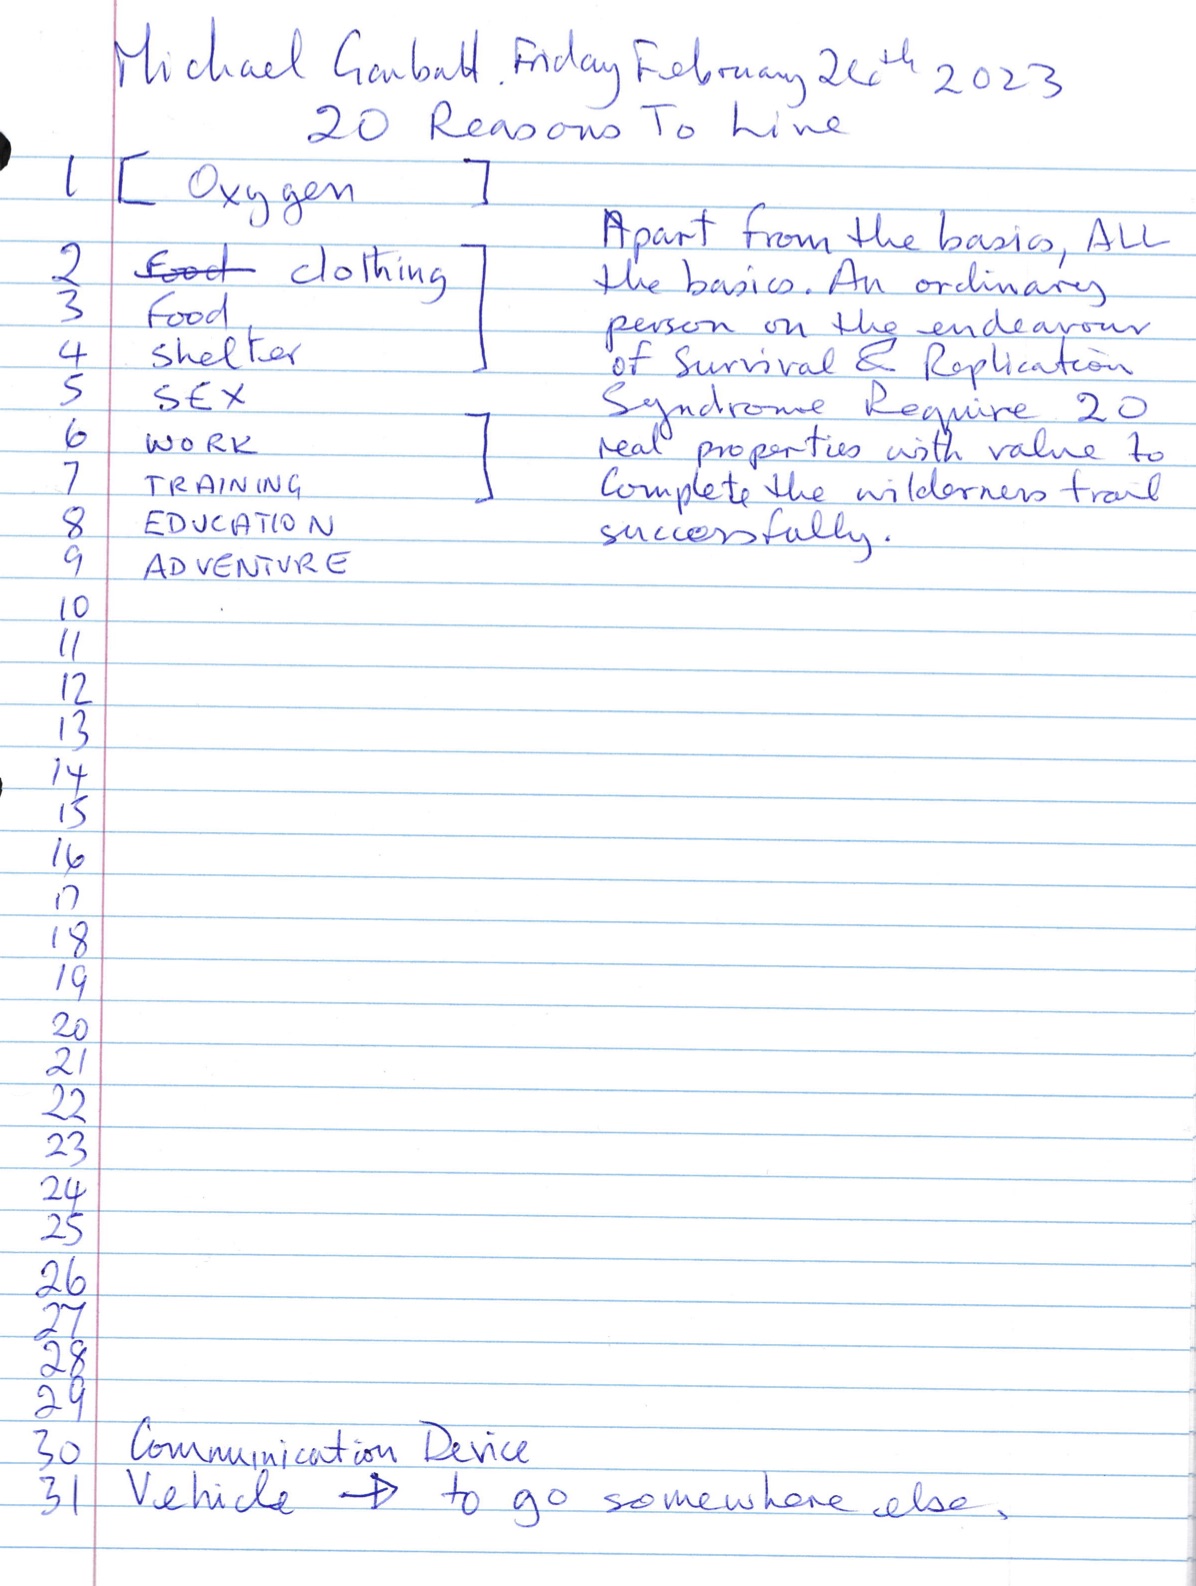 Michael Garbutt. Friday February 24th 2023
20 Reasons To Live
1 [ Oxygen ]
2 ~~Food~~ clothing
3 Food
4 Shelter
5 SEX
6 WORK
7 TRAINING
8 EDUCATION
9 ADVENTURE
Apart from the basics, ALL
the basics. An ordinary
person on the endeavour
of Survival & Replication
Syndrome Require 20
real properties with value to
Complete the wilderness trail
successfully.
10
11
12
13
14
15
16
17
18
19
20
21
22
23
24
25
26
27
28
29
30 Communication Device
31 Vehicle → to go somewhere else.